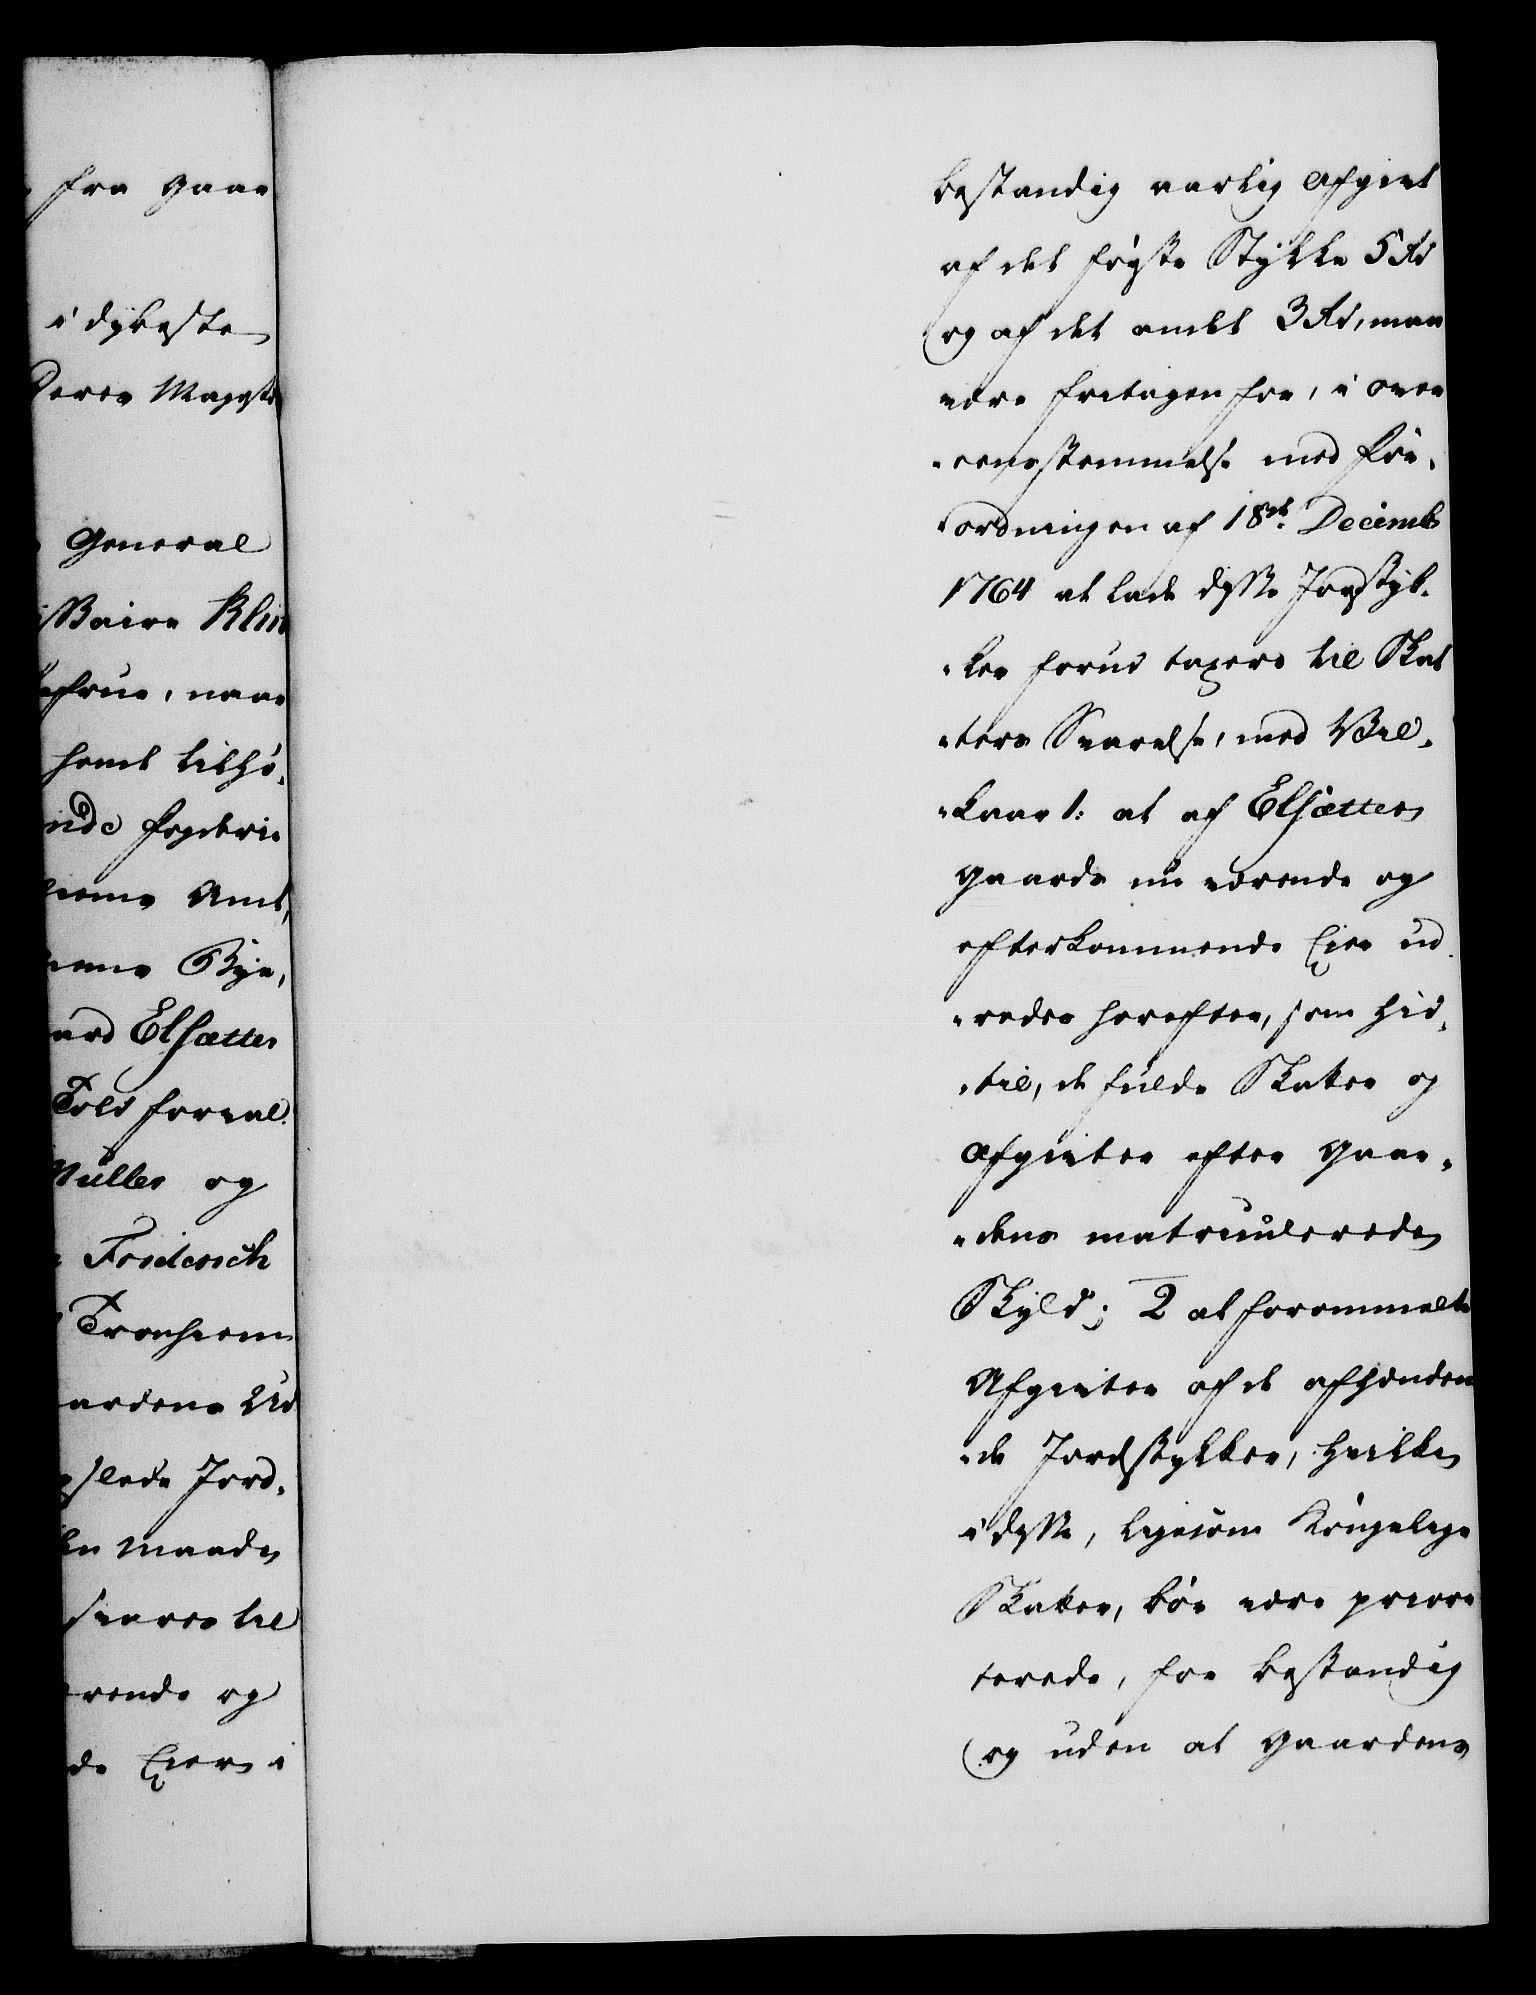 fra Gaar
i dybeste
Deres Majestæ
General
issaire Klin
frue, naar
hendt tilhø-
nde Fogderie
hiems Amt,
hiems Bye,
ard Elsætter
Told forval-
Müller og
Friderich
Tronhiem
ardens Ud
slede Jord-
maade
svares til
rende og
de Eiere i
bestandig aarlig Afgivt
af det første Stykke 5 Rd
og af det andet 3 Rd, maae
være fritagen for, i over
eensstemmelse med For-
ordningen af 18de Decemb
1764 at lade disse Jordstyk-
ker forud taxere til Skat
ters Svarelse, med Vil-
kaar 1: at af Elsætter
Gaards nu værende og
efterkommende Eier ud-
redes herefter, som hid-
til, de fulde Skatter og
Afgivter efter Gaar-
dens matriculerede
Skyld; 2 at forommelte
Afgivter af de afhænden
de Jordstykker, hvilke
i disse, ligesom Kongelige
Skatter, bør være priori
terede, for bestandig
og uden at Gaardens